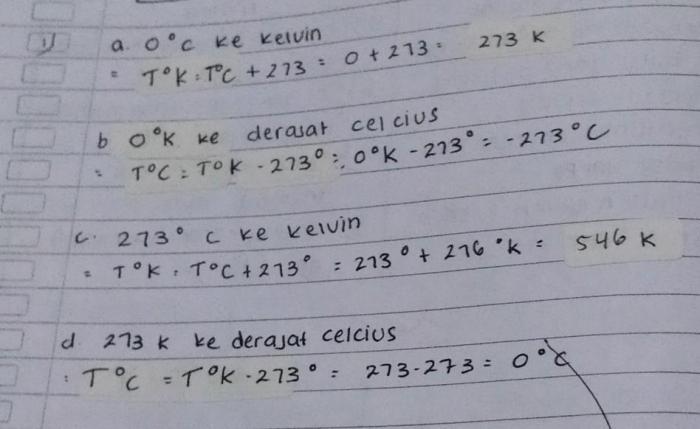 1) a. 0°C ke kelvin
= T°K = T°C + 273 = 0 + 273 = 273 K
b 0°K ke derajat celcius
= T°C = T°K - 273° = 0°K - 273° = -273°C
c. 273° C ke kelvin
= T°K = T°C + 273° = 273° + 276°K = 546 K
d. 273 K ke derajat celcius
: T°C = T°K - 273° = 273-273 = 0°C